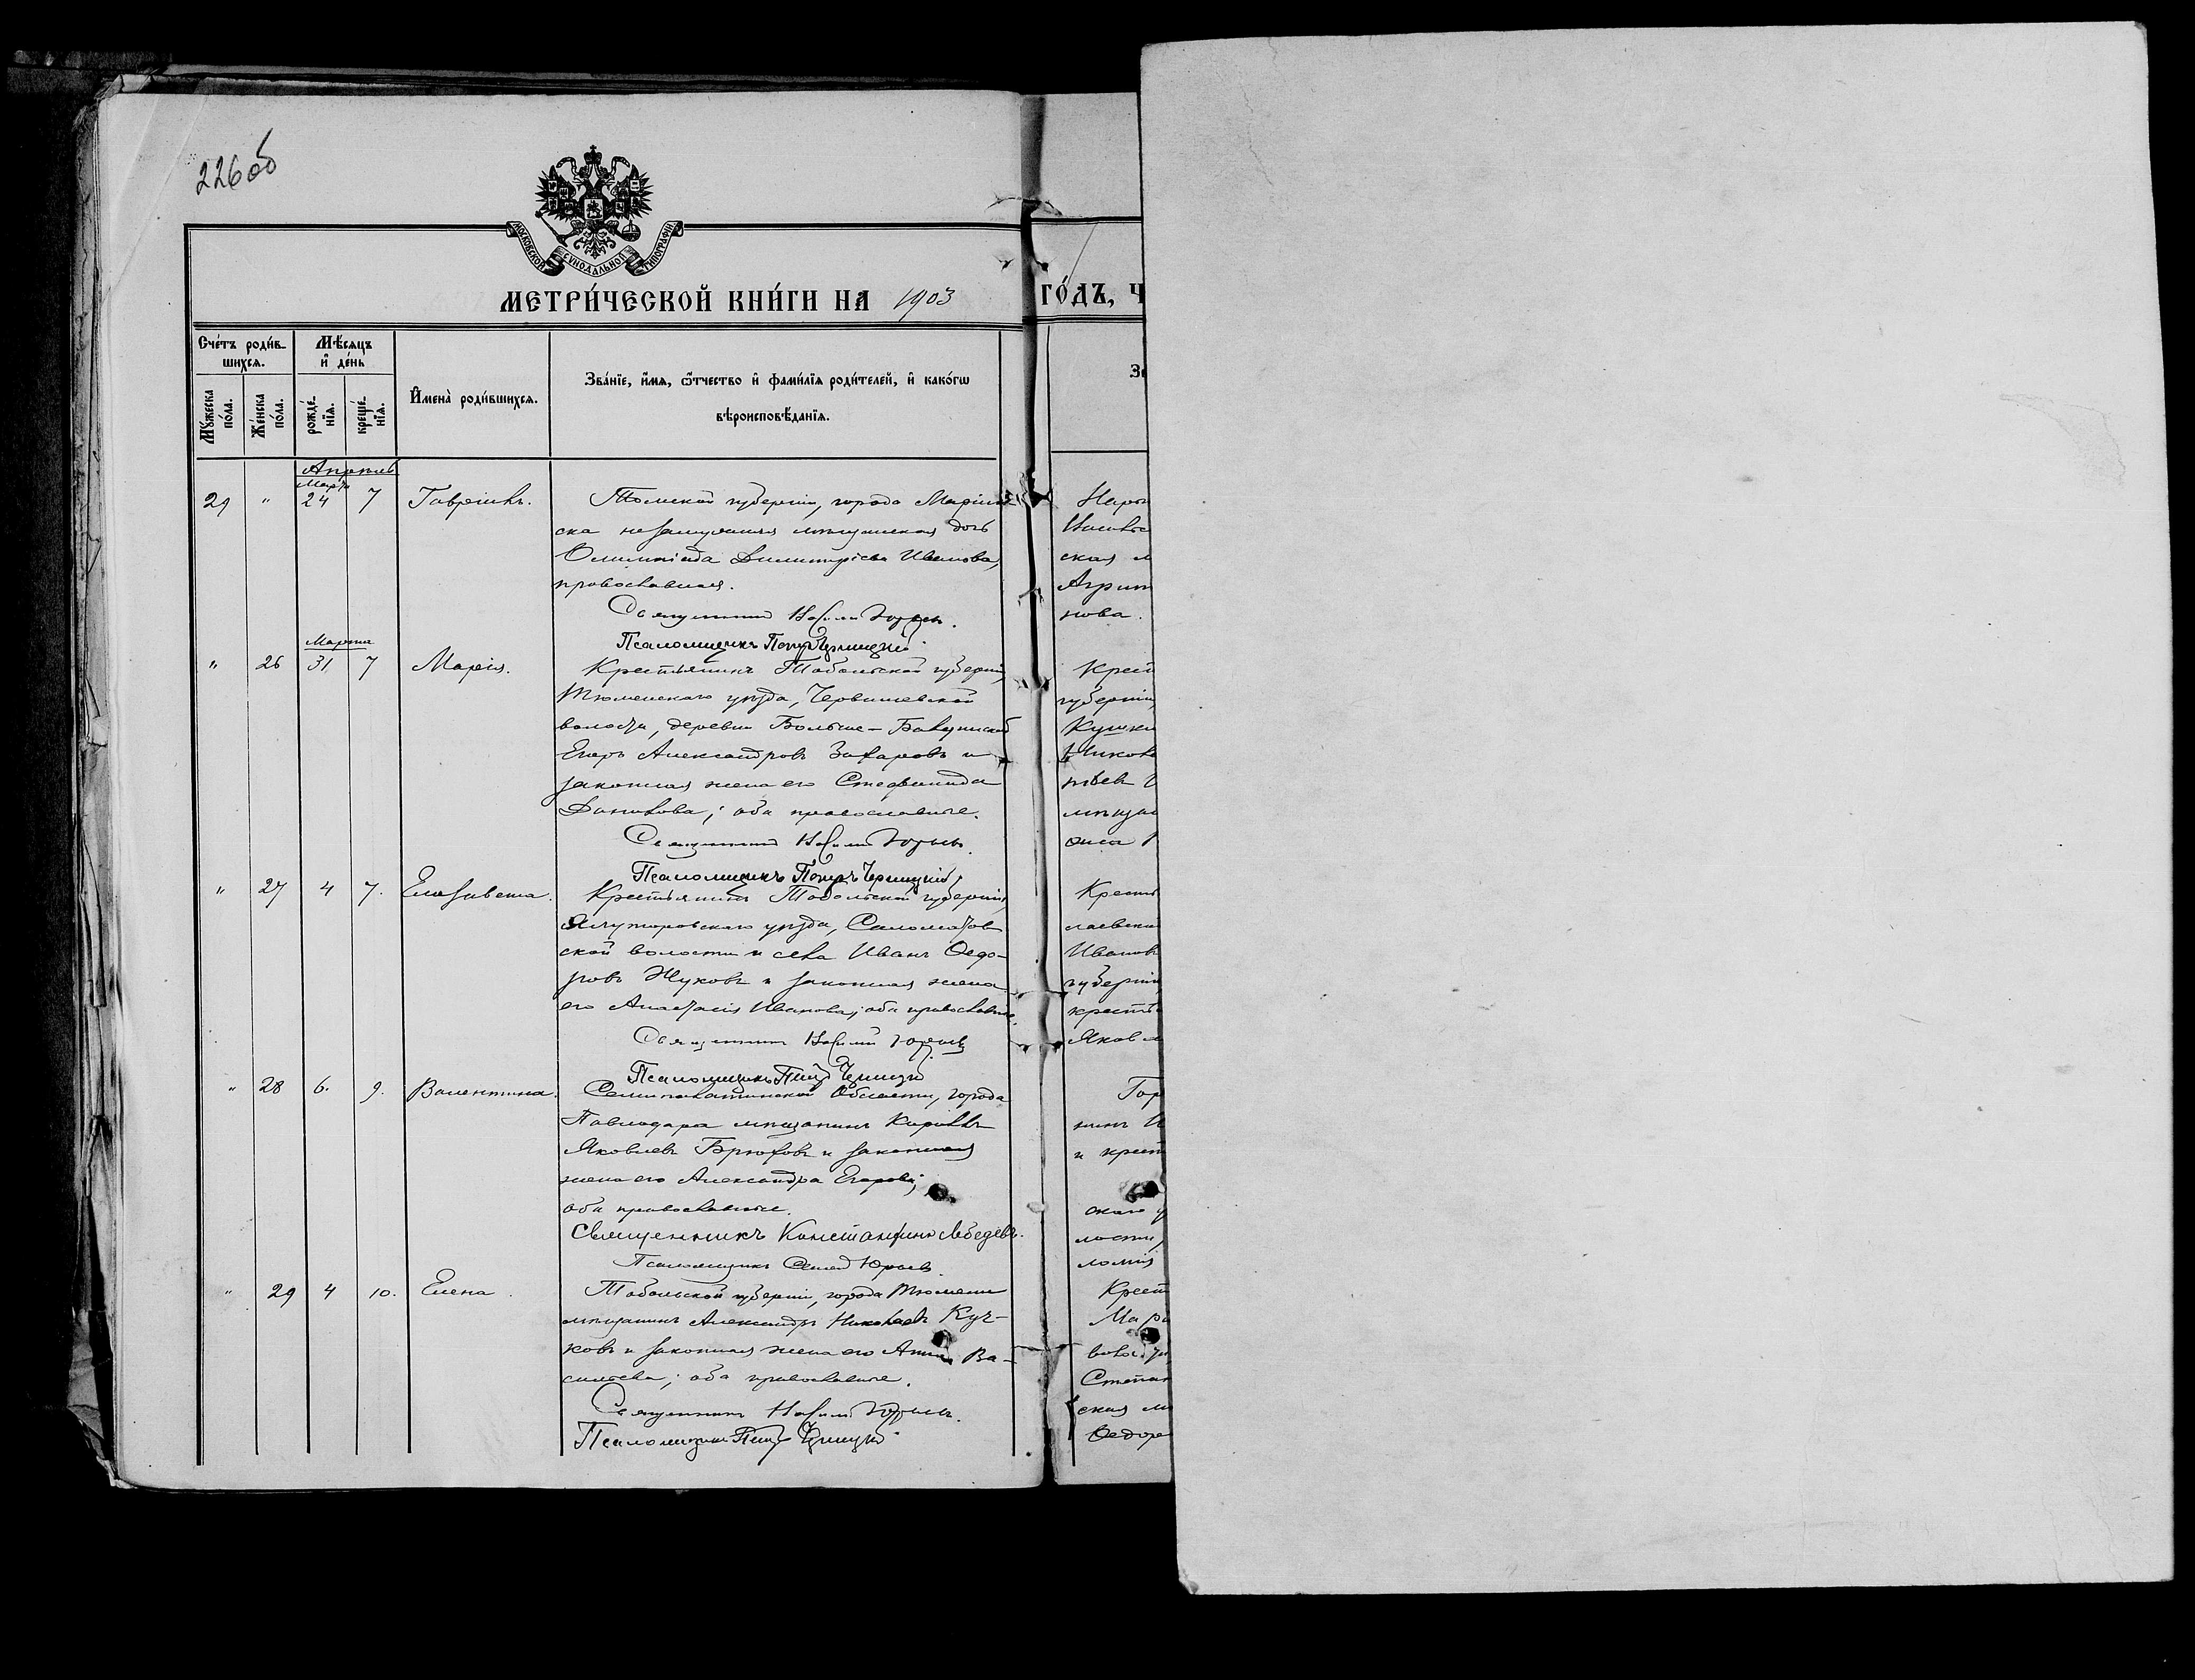 226 об
МОСКОВСКОЙ СУНОДАЛЬНОЙ ТИПОГРАФІИ
МЕТРИ́ЧЕСКОЙ КНИ́ГИ НА 1903
ГО́ДЪ, Ч
Сче́тъ роди́в-
шихся.
Мѣ́сяцъ
и де́нь
Му́жеска
по́ла.
Же́нска
по́ла.
рожде́-
нїя.
креще́-
нїя.
Имена̀ роди́вшихся.
Зва́нїе, и́мя, ѻ҆́тчество и҆ фами́лїя роди́телей, и҆ како́гѡ
вѣроисповѣ́данїя.
Апрѣль
Мартъ
29 " 24 7 Гавріилъ.
Томской губерніи, города Маріин-
ска незамужняя мѣщанская дочь
Олимпіада Димитріева Иванова,
православная.
Священникъ Василій Юрьевъ.
Псаломщикъ Петръ Черницкій
Марта
" 26 31 7 Марія.
Крестьянинъ Тобольской губерніи,
Тюменскаго уѣзда, Червишевской
волости, деревни Больше-
Егоръ Александровъ Захаровъ и
законная жена его Стефанида
Данилова; оба православные.
Священникъ Василій Юрьевъ.
Псаломщикъ Петръ Черницкій
" 27 4 7. Елизавета.
Крестьянинъ Тобольской губерніи,
Ялуторовскаго уѣзда, Саломатов
ской волости и села Иванъ Ѳедо-
ровъ Жуковъ и законная жена
его Анастасія Иванова; оба православные.
Священникъ Василій Юрьевъ
Псаломщикъ Петръ Черницкій
" 28 6. 9. Валентина.
Семипалатинской Области, города
Павлодара мѣщанинъ Кириллъ
Яковлевъ Брюховъ и законная
жена его Александра Егорова;
оба православные.
Священникъ Константинъ Лебедевъ.
Псаломщикъ Юрьевъ.
" 29 4 10. Елена.
Тобольской губерніи, города Тюмени
мѣщанинъ Александръ Николаевъ Куч-
ковъ и законная жена его Анна Ва-
сильева; оба православные.
Священникъ Василій Юрьевъ.
Псаломщикъ Петръ Черницкій
ская м
нова.
Крест
губерніи,
Крестья
Иванов
губерніи
крестья
Яковл
Гор
и крест
скаго у
лости,
Крест
Степан
ская м
Ѳедоро